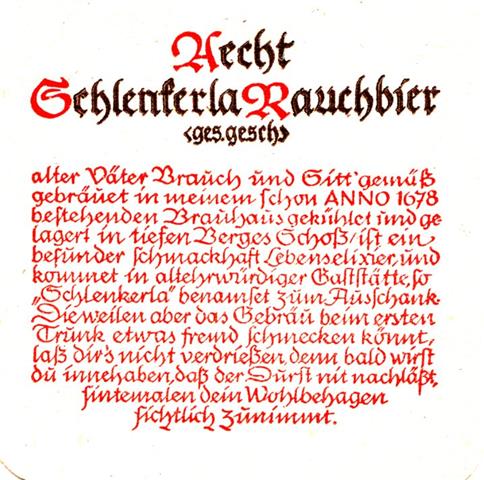 Aecht
Schlenkerla Rauchbier
<ges.gesch>
alter Väter Brauch und Sitt' gemäß
gebräuet in meinem schon ANNO 1678
bestehenden Brauhaus gekühlet und ge
lagert in tiefen Berges Schoß/ist ein
besunder schmackhaft Lebenselixier und
kommet in altehrwürdiger Gaststätte, so
„Schlenkerla" benamset zum Ausschank.
Dieweilen aber das Gebräu beim ersten
Trunk etwas fremd schmecken könnt,
laß dir's nicht verdrießen, denn bald wirst
du innehaben, daß der Durst nit nachläßt,
sintemalen dein Wohlbehagen
sichtlich zunimmt.